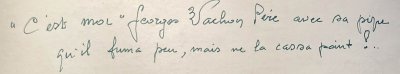 "C'est moi" Georges Vachon Père avec sa pipe
qu'il fuma peu, mais ne la cassa point !..